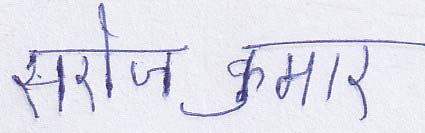 सरोज कुमार